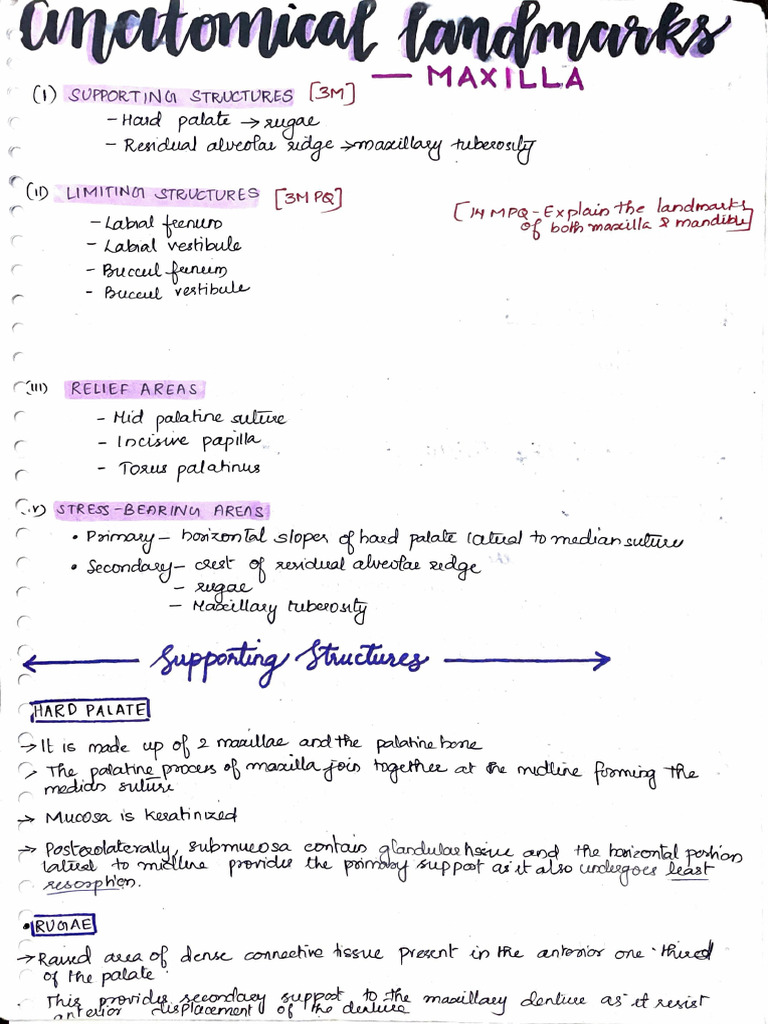 anatomical landmarks
— MAXILLA
(I) SUPPORTING STRUCTURES [3M]
- Hard palate → rugae
- Residual alveolar ridge → maxillary tuberosity
(II) LIMITING STRUCTURES [3M PQ]
[14 MPQ - Explain the landmarks
of both maxilla & mandible]
- Labial frenum
- Labial vestibule
- Buccal frenum
- Buccal vestibule
(III) RELIEF AREAS
- Mid palatine suture
- Incisive papilla
- Torus palatinus
V) STRESS-BEARING AREAS
• Primary - horizontal slopes of hard palate lateral to median suture
• Secondary - crest of residual alveolar ridge
- rugae
- Maxillary tuberosity
Supporting Structures
HARD PALATE
→ It is made up of 2 maxillae and the palatine bone
→ The palatine process of maxilla join together at the midline forming the
median suture
→ Mucosa is keratinized
→ Posterolaterally, submucosa contain glandular tissue and the horizontal portion
lateral to midline provides the primary support as it also undergoes least
resorption.
• RUGAE
→ Raised area of dense connective tissue present in the anterior one third
of the palate.
This provides secondary support to the maxillary denture as it resist
anterior displacement of the denture